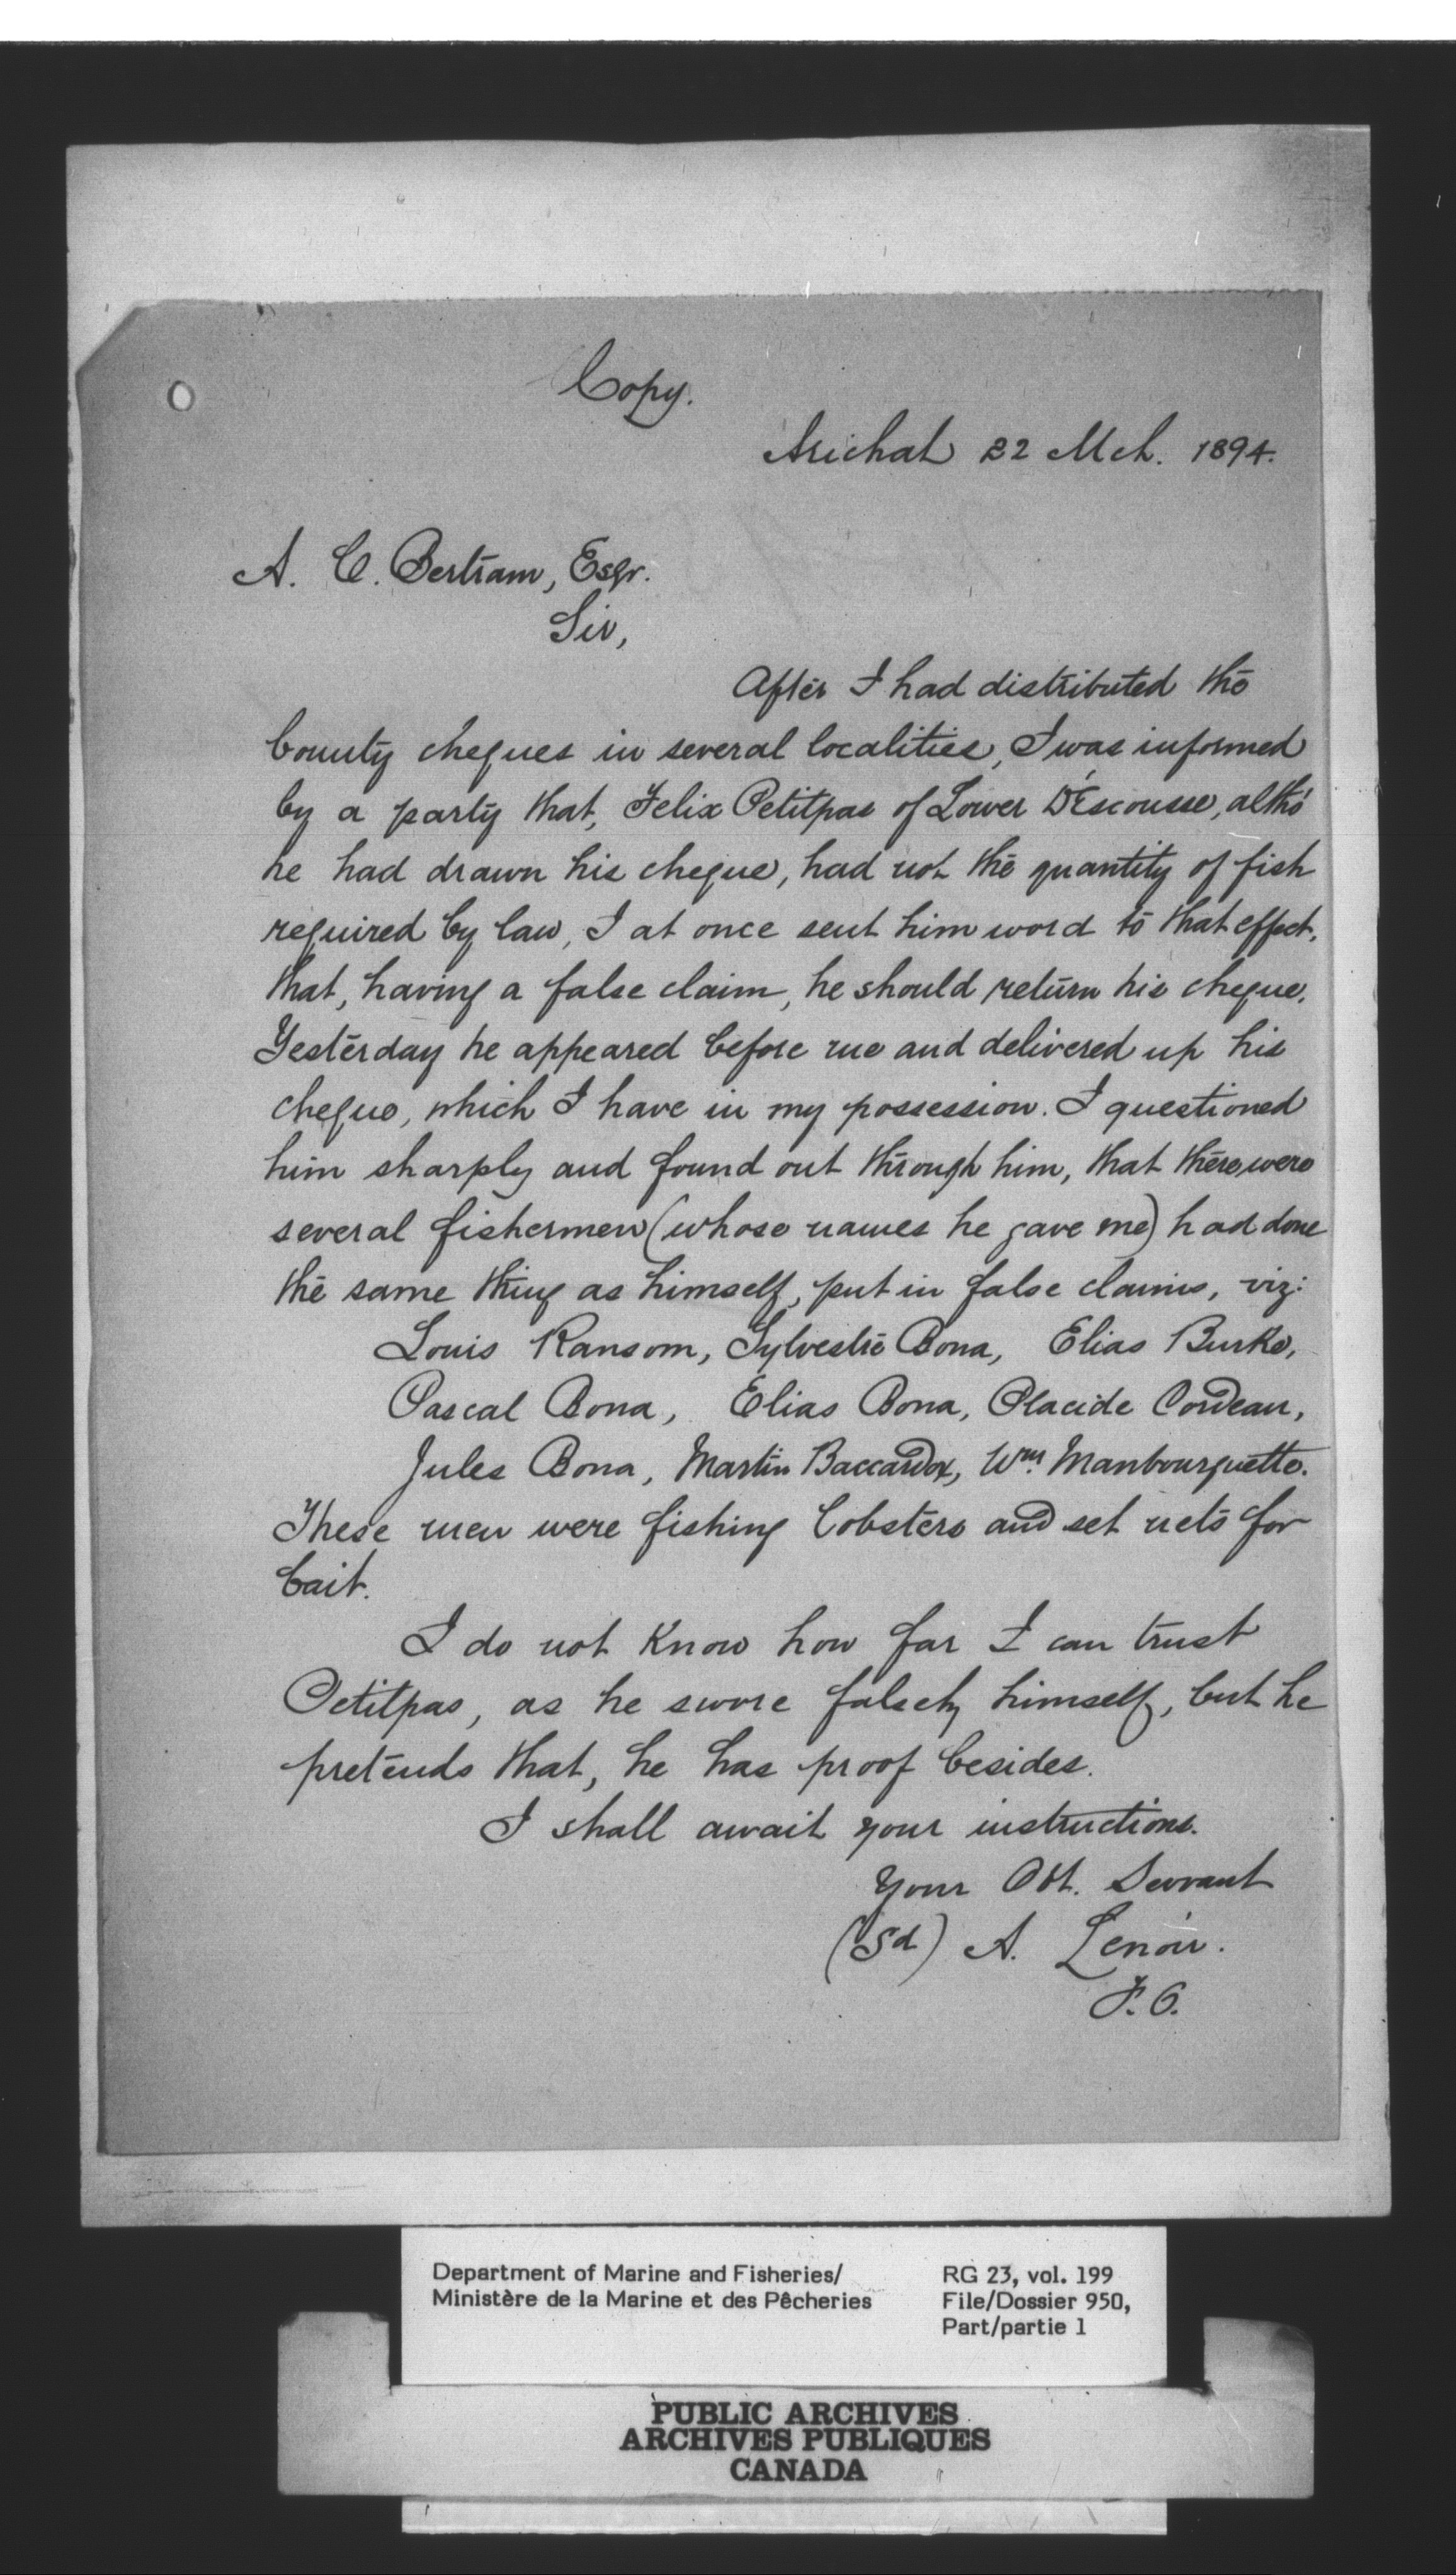 Copy.
Arichat 22 Mch. 1894.
A. C. Bertram, Esqr.
Sir,
After I had distributed the
bounty cheques in several localities, I was informed
by a party that, Felix Petitpas of Lower D'Escousse, altho'
he had drawn his cheque, had not the quantity of fish
required by law, I at once sent him word to that effect,
that, having a false claim, he should return his cheque.
Yesterday he appeared before me and delivered up his
cheque, which I have in my possession. I questioned
him sharply and found out through him, that there were
several fishermen (whose names he gave me) had done
the same thing as himself, put in false claims, viz:
Louis Ransom, Sylvestre Bona, Elias Burke,
Pascal Bona, Elias Bona, Placide Cordeau,
Jules Bona, Martin Baccardox, Wm. Manbourquette.
These men were fishing lobsters and set nets for
bait.
I do not know how far I can trust
Petitpas, as he swore falsely himself, but he
pretends that, he has proof besides.
I shall await your instructions.
Your Obt. Servant
(Sd) A. Lenoir.
F. O.
Department of Marine and Fisheries/
Ministère de la Marine et des Pêcheries
RG 23, vol. 199
File/Dossier 950,
Part/partie 1
PUBLIC ARCHIVES
ARCHIVES PUBLIQUES
CANADA